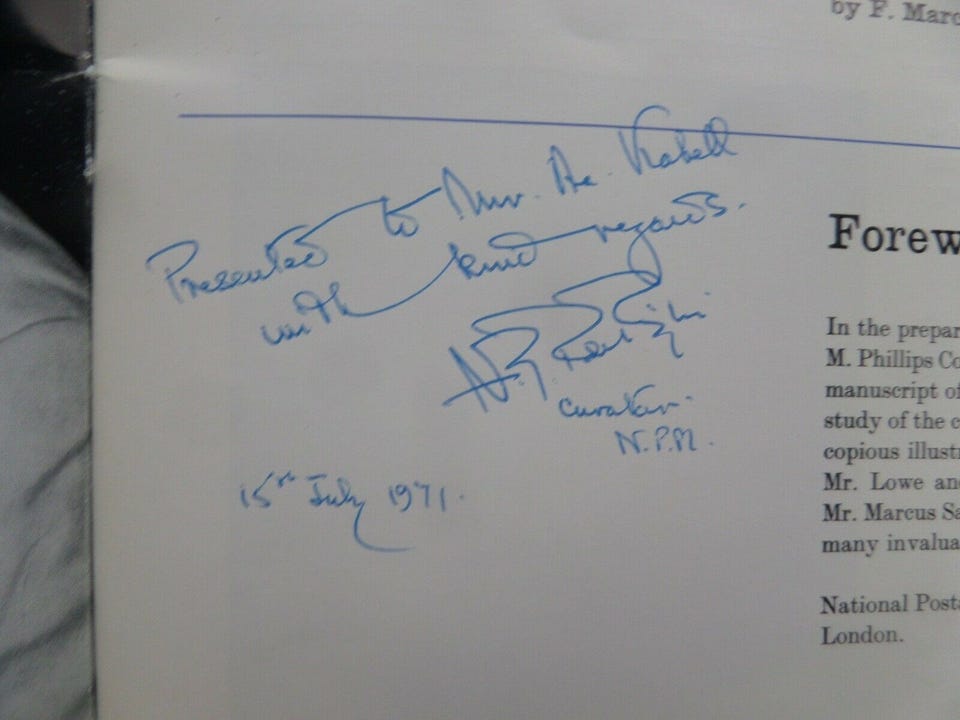 by F. Marc
Presented to Mr. De. Krabell
with kind regards.
Curator.
N.P.M.
15th July 1971.
Forew
In the prepar
M. Phillips Co
manuscript of
study of the c
copious illustr
Mr. Lowe and
Mr. Marcus Sa
many invalua
National Posta
London.